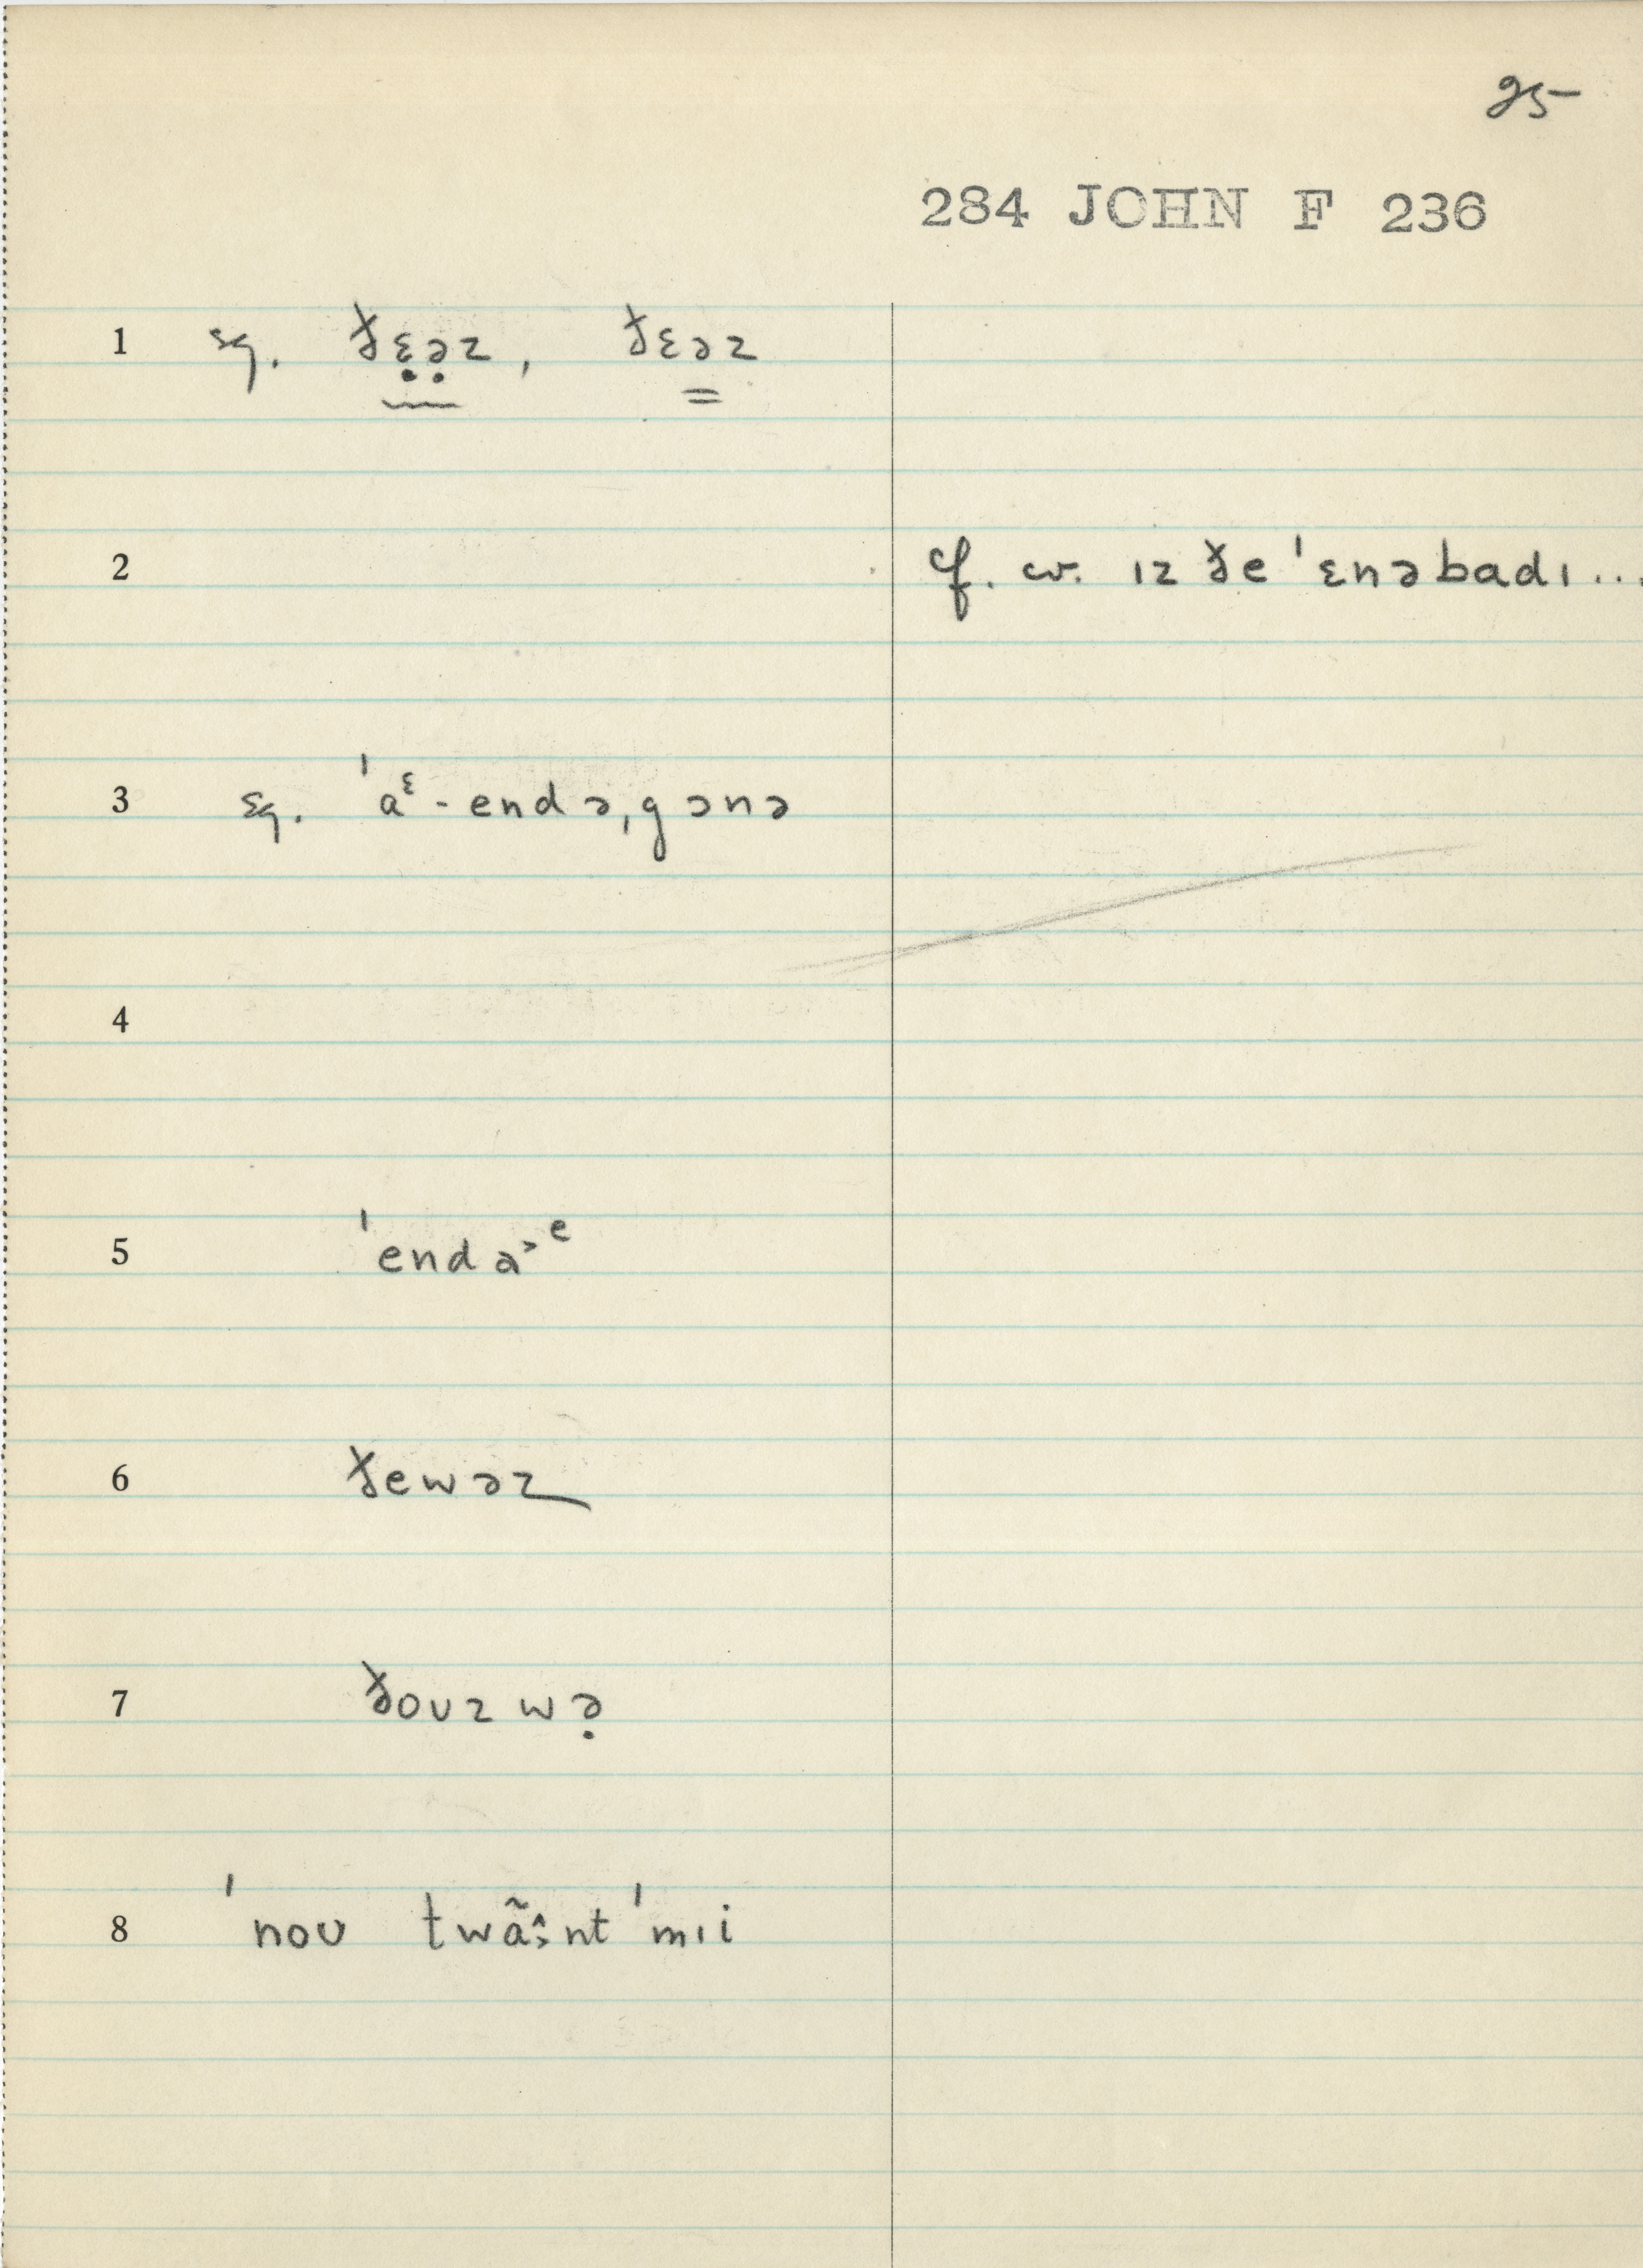 25
284 JOHN F 236
1 sq. ðɛ̣ə̣z, ðɛəz
2 cf. w. ɪz ðe ˈɛnəbadɪ...
3 sq. ˈaᵋ-endə,gɔnə
4
5 ˈenda˃ᵉ
6 ðewəz
7 ðoʊz wə̣
8 ˈnoʊ twãːnt ˈmɪi